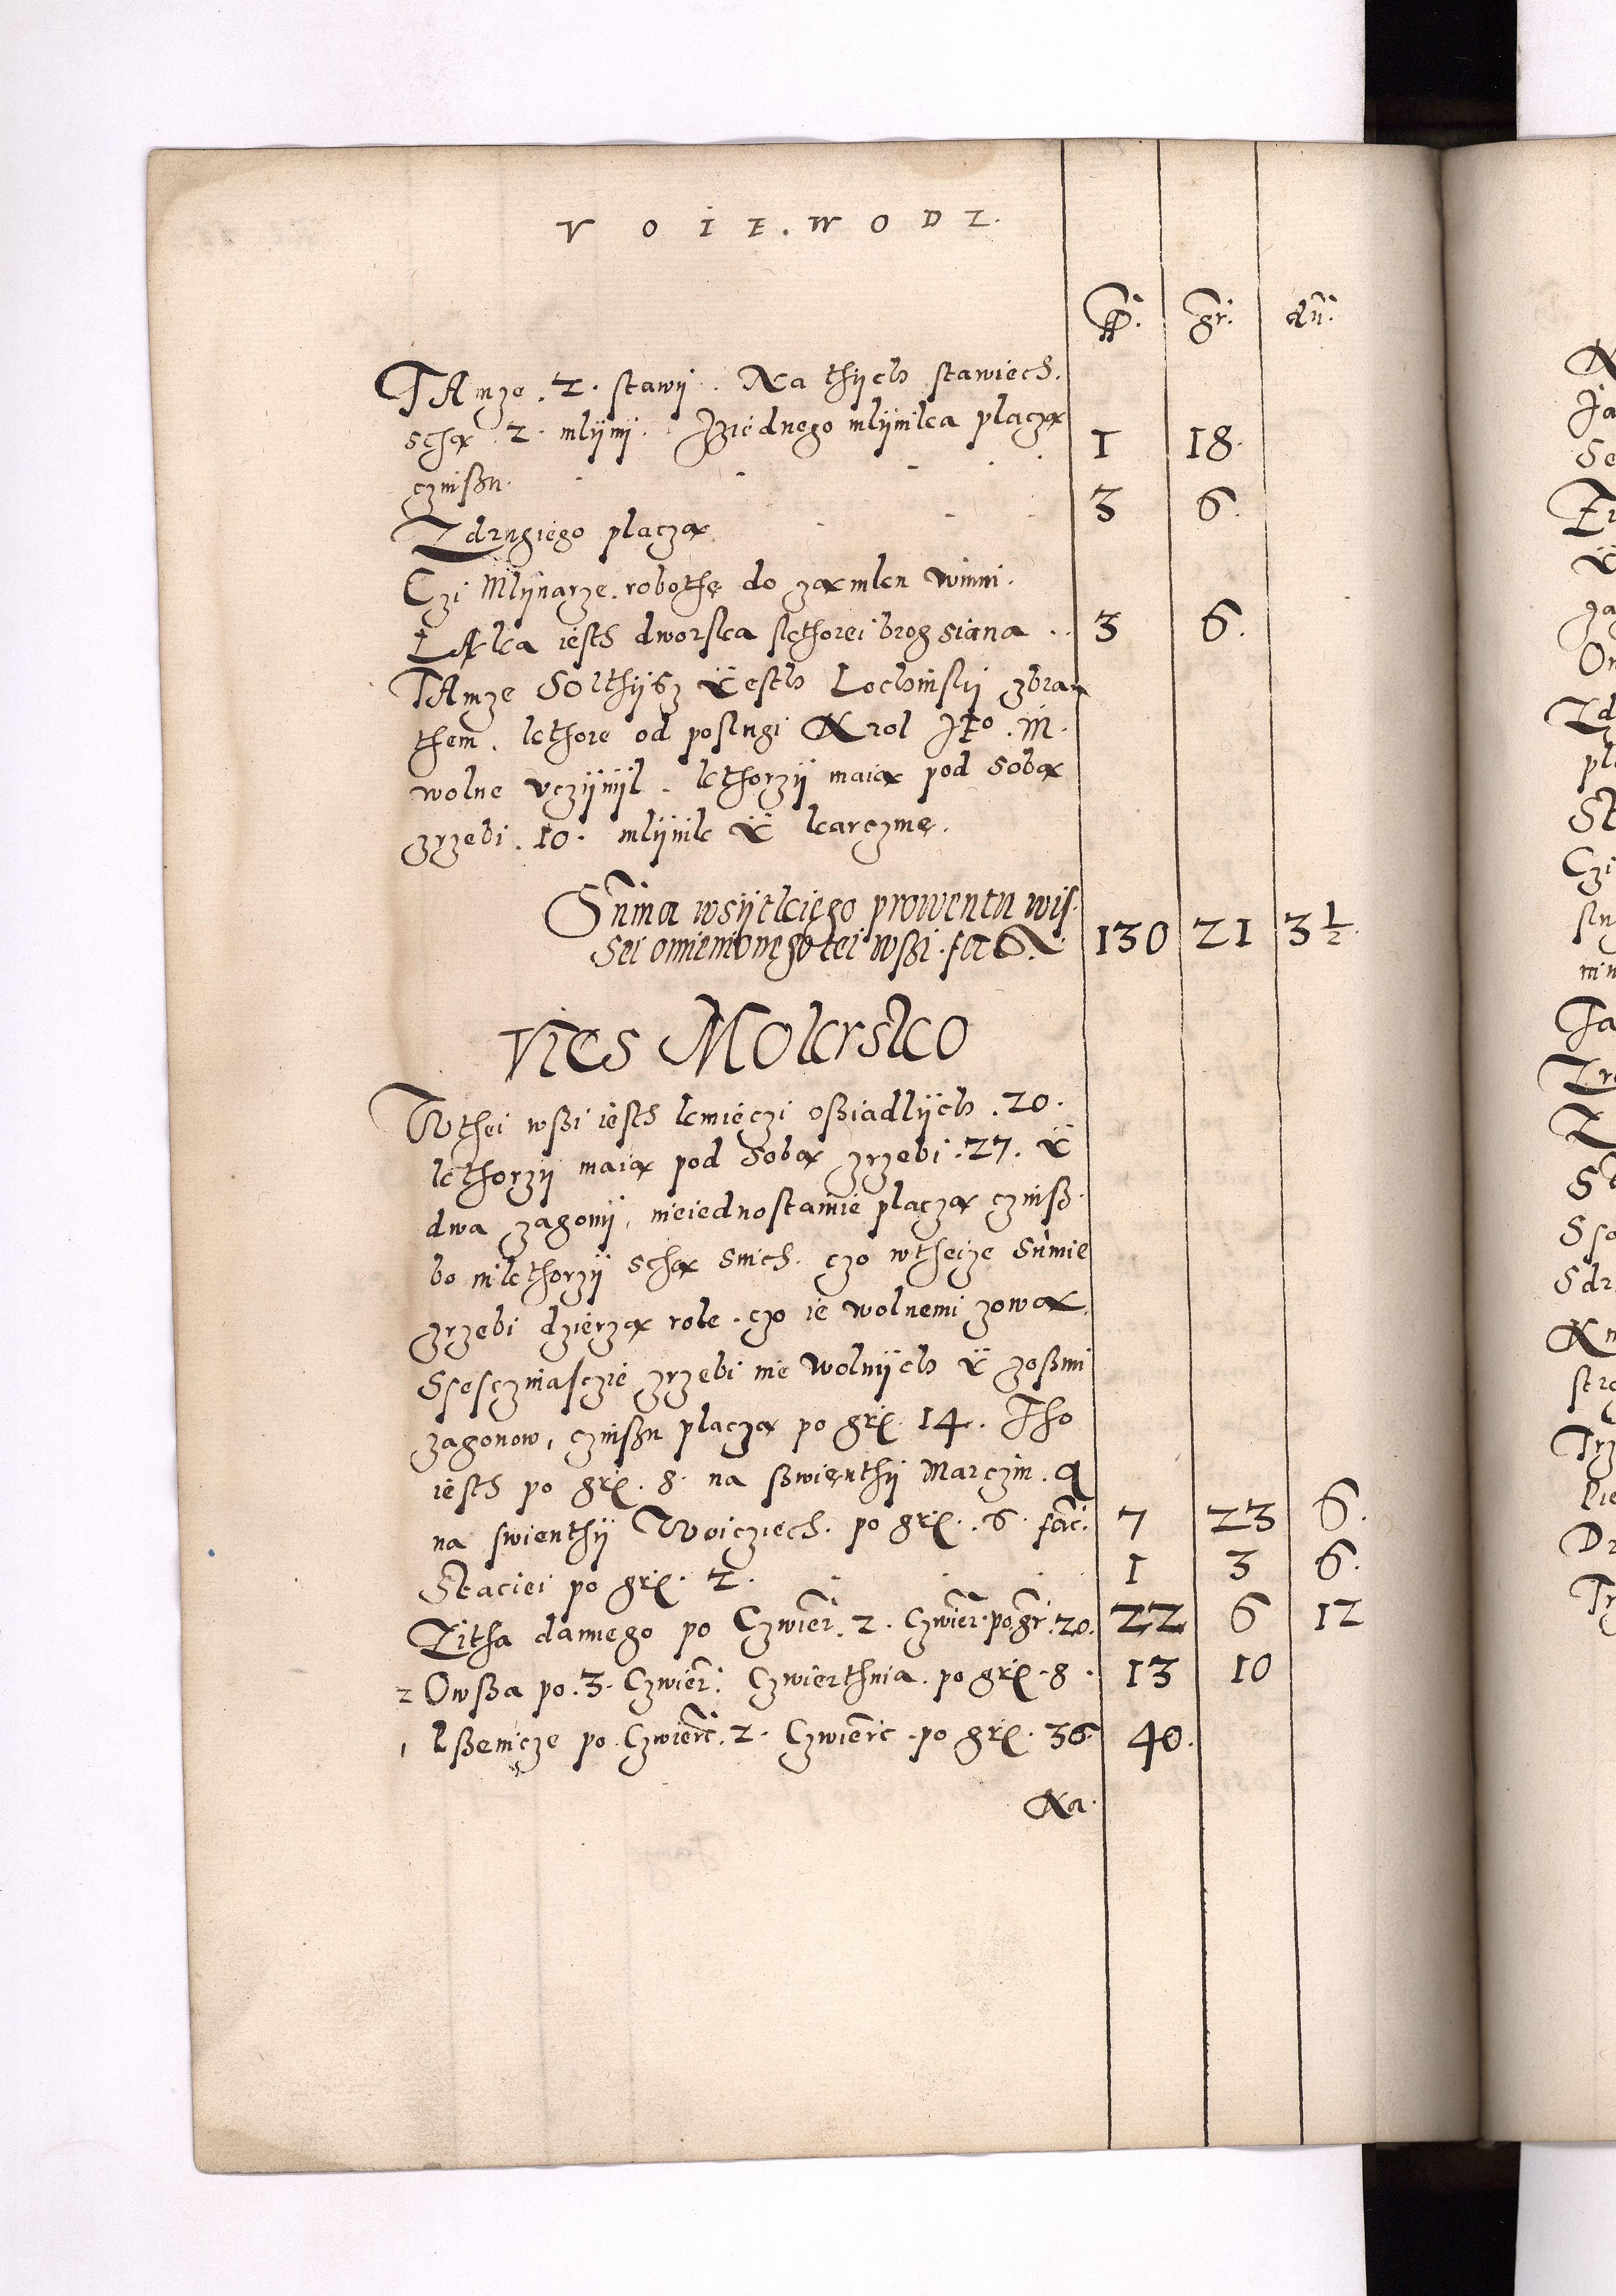 VOIE.WODZ.
fl. gr. dn.
TAmze . 2 . stawÿ . Na thÿch stawiech.
sthą . 2 . mlÿnÿ . Iziednego mlÿnika placzą
czinßu . 1 18.
Zdrugiego placzą 3 6.
Czi Mlÿnarze . robothę do zamku winni.
LAka iesth dworska skthorei brog siana . . 3 6.
TAmze Solthÿsz ÿ esth Lochinskÿ zbra-
them . kthore od poslugi Krol Je° . M.
wolne vczÿnÿl . kthorzÿ maią pod Sobą
zrzebi . 10 . mlÿnik ÿ karczmę.
Suma wsÿtkiego prowentu wis
sei omienionego tei wßi . facit 130 21 3 1/2.
VIES MOKRSKO
W thei wßi iesth kmieczi oßiadlÿch . 20 .
kthorzÿ maią pod Sobą zrzebi . 27 . ÿ
dwa zagonÿ, nieiednostainie placzą czinß.
bo niktorzÿ sthą snich . czo wtheize Sumie
zrzebi dzierzą role . czo ie wolnemi zową.
Ssesczinasczie zrzebi nie wolnÿch ÿ zoßmi
zagonow, czinßu placzą po gr. 14 . Tho
iesth po gr. 8 . na ßwienthÿ Marczin . A
na swienthÿ Woicziech . po gr. . 6 . fac. 7 23 6.
Staciei po gr. 2 . 1 3 6.
Zitha dannego po Czwier. 2 . Czwier. po gr. 20. 22 6 12
2 Owßa po . 3 . Czwier. Czwierthnia . po gr. 8 . 13 10
, Pßenicze po . Czwierc. 2 . Czwierc . po gr. 36 40.
Na.